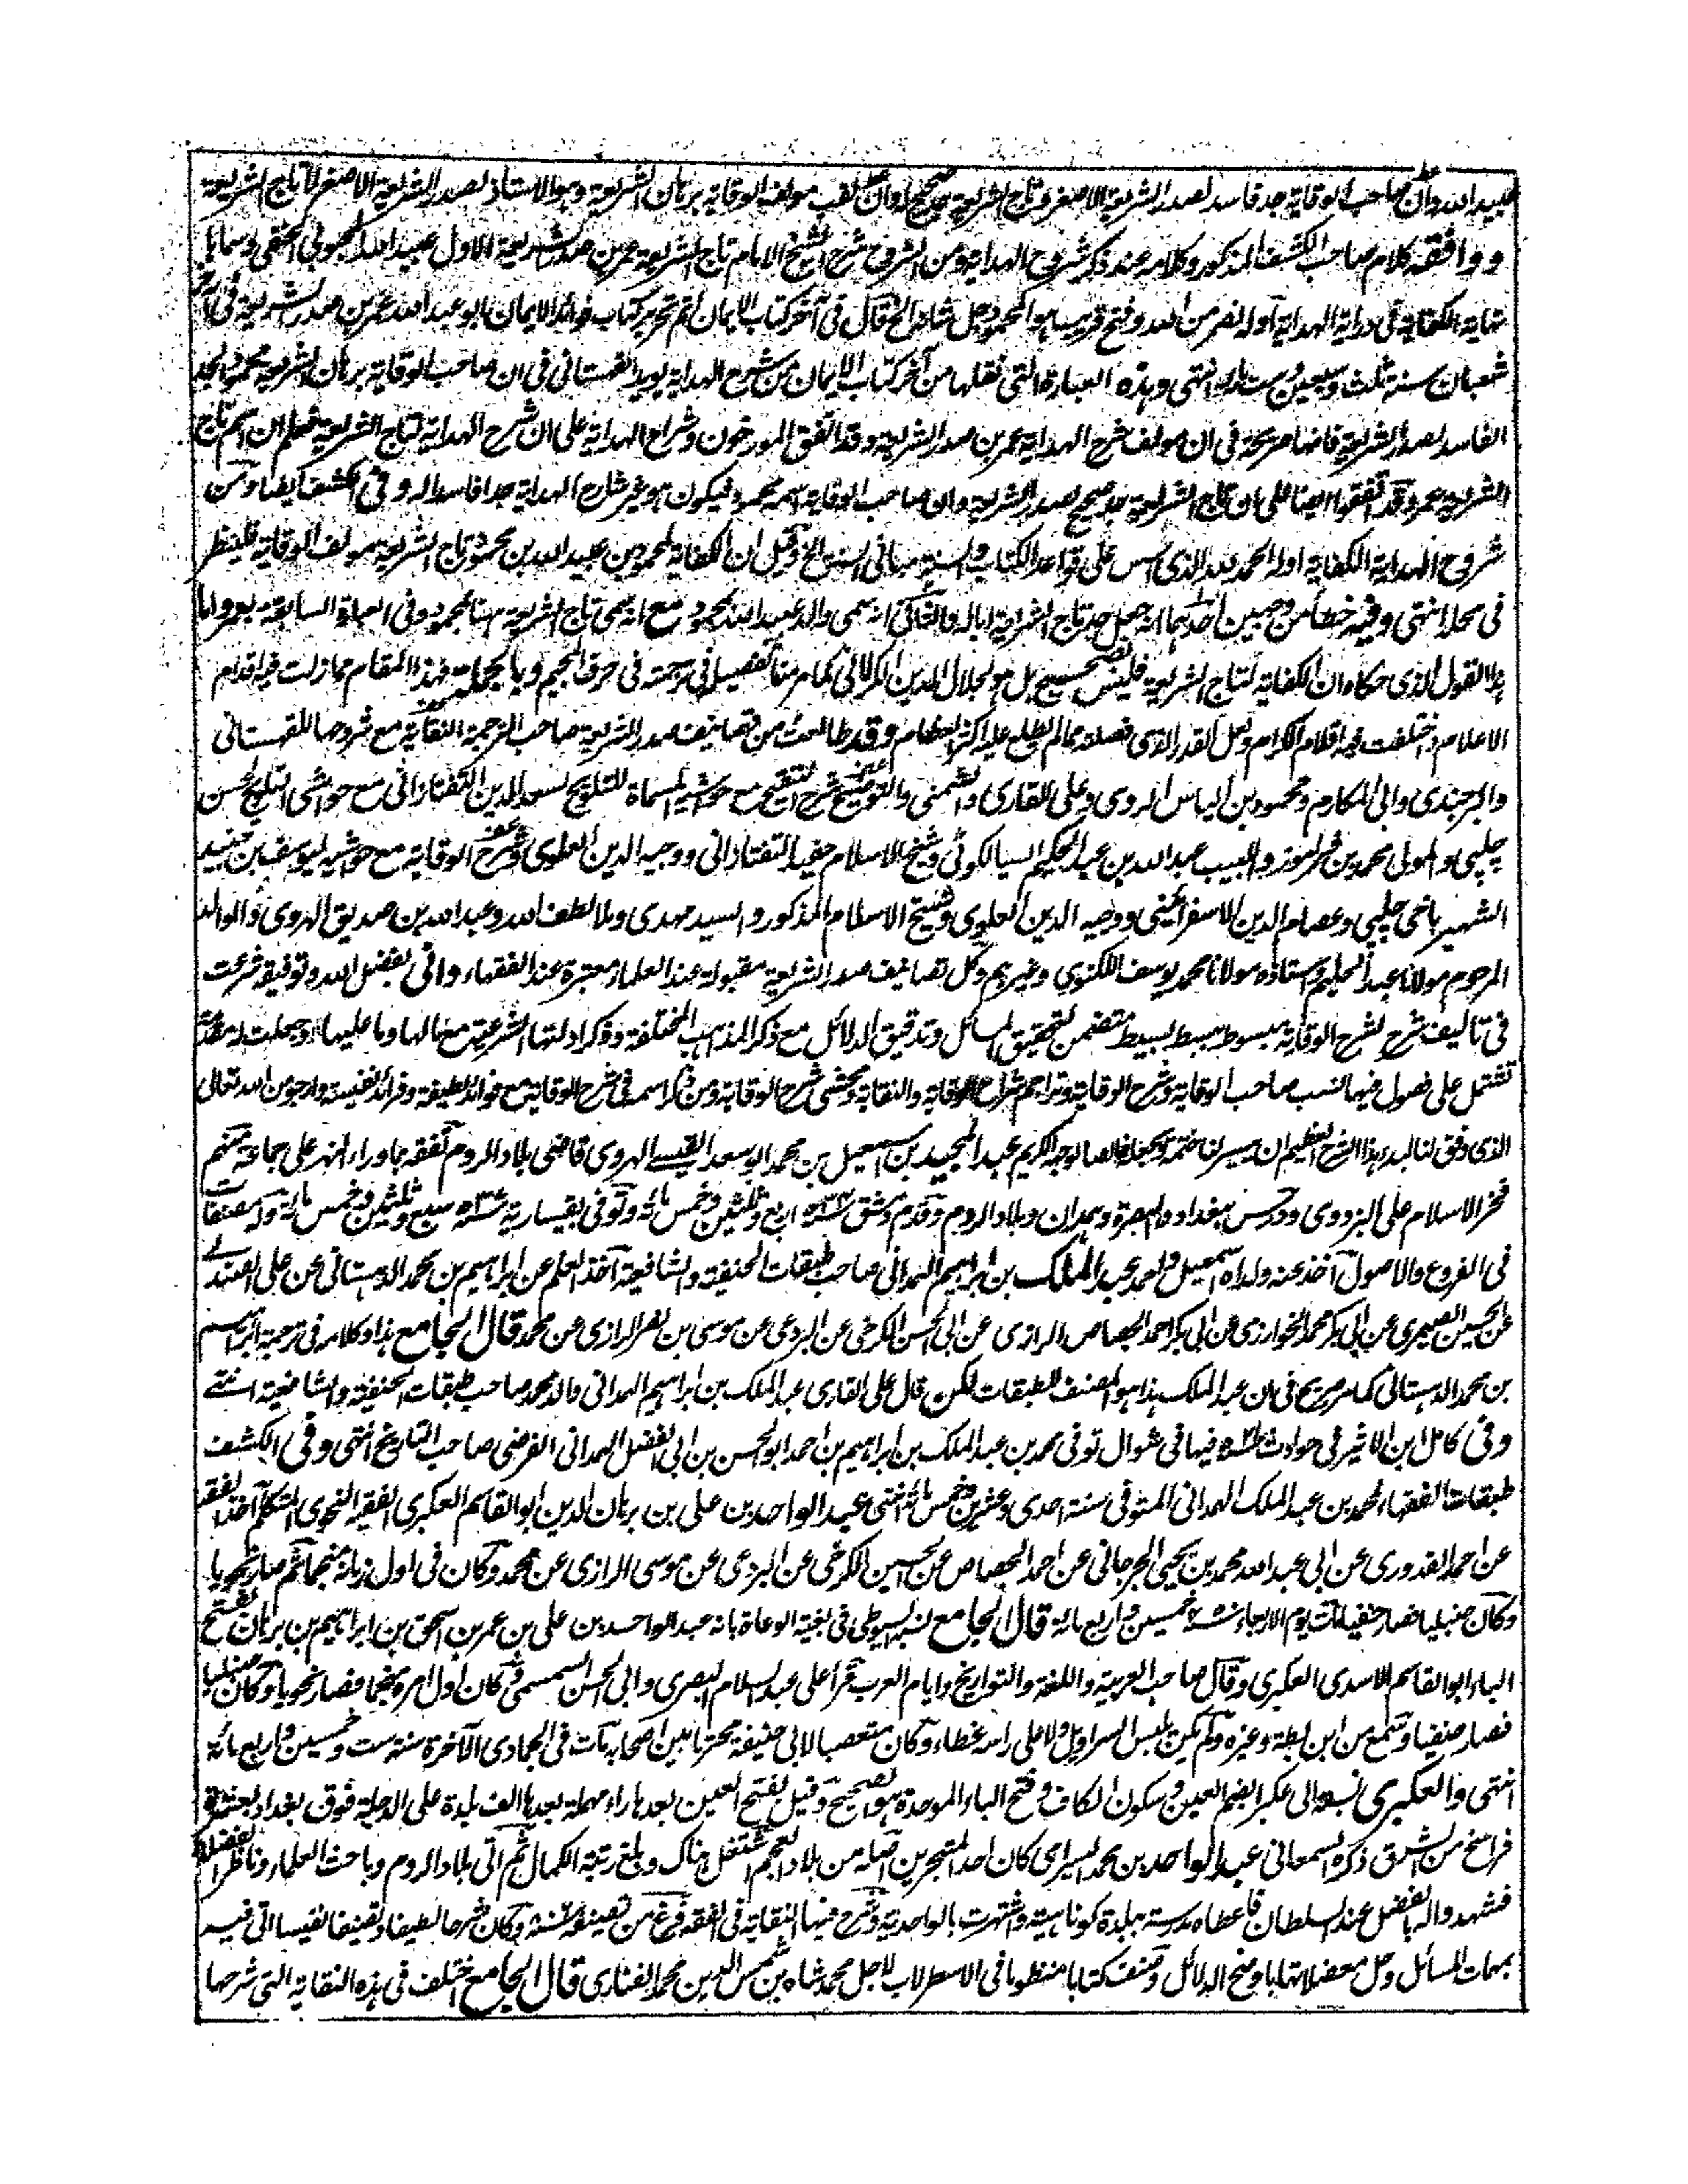 عبيد الله وان صاحب الوقاية جد فاسد لصدر الشريعة الاصغر وتاج الشريعة جد صحيح له وان لقب مولف الوقاية برهان الشريعة وهو الاستاذ لصدر الشريعة الاصغر لا تاج الشريعة
ووافقه كلام صاحب الكشف المذكور وكلامه عند ذكر شروح الهداية ومن الشروح شرح الشيخ الامام تاج الشريعة عمر بن صدر الشريعة الاول عبيد الله المحبوبي الحنفي وسماه
نهاية الكفاية في دراية الهداية اوله نصر من الله وفتح قريب هو المحمود جل شانه الخ قال في آخر كتاب الايمان تم تحرير كتاب فوائد الايمان ابو عبد الله عمر بن صدر الشريعة في آخر
شعبان سنة ثلث وسبعين وست مائة انتهى وهذه العبارة التي نقلها من آخر كتاب الايمان من شرح الهداية يويد القهستاني في ان صاحب الوقاية برهان الشريعة محمود الجد
الفاسد لصدر الشريعة فانها صريحة في ان مولف شرح الهداية عمر بن صدر الشريعة وقد اتفق المورخون وشراح الهداية على ان شرح الهداية لتاج الشريعة فعلم ان اسم تاج
الشريعة عمر وقد اتفقوا ايضا على ان تاج الشريعة جد صحيح لصدر الشريعة وان صاحب الوقاية اسمه محمود فيكون هو غير شارح الهداية جدا فاسدا له وفي الكشف ايضا ومن
شروح الهداية الكفاية اوله الحمد لله الذي اسس على قواعد الكتاب والسنة مباني السنن الخ وقيل ان الكفاية لمحمود بن عبيد الله بن محمود تاج الشريعة مولف الوقاية فلينظر
في محله انتهى وفيه خطأ من وجهين احدهما انه جعل جد تاج الشريعة ابا له والثاني انه سمى والد عبيد الله بمحمود مع انه سمى تاج الشريعة ههنا بمحمود وفي العبارة السابقة بعمر واما
هذا القول الذي حكاه ان الكفاية لتاج الشريعة فليس بصحيح بل هو لجلال الدين الكرلاني كما مر منا تفصيله في ترجمته في حرف الجيم وبالجملة فهذا المقام مما زلت فيه اقدام
الاعلام واختلفت فيه اقلام الكرام ولعل القدر الذي فصلته مما لم يطلع عليه اكثر العظام وقد طالعت من تصانيف صدر الشريعة صاحب الترجمة النقاية مع شروحها للقهستاني
والبرجندي وابي المكارم ومحمود بن الياس الرومي وعلي القاري والشمني والتوضيح شرح التنقيح مع حواشيه المسماة للتلويح لسعد الدين التفتازاني مع حواشي التلويح لحسن
چلپي والمولى محمد بن فرامرز واللبيب عبد الله بن عبد الحكيم السيالكوتي وشيخ الاسلام حفيد التفتازاني ووجيه الدين العلوي وشرح الوقاية مع حواشيه ليوسف بن جنيد
الشهير باخي چلپي وعصام الدين الاسفرائني ووجيه الدين العلوي وشيخ الاسلام المذكور والسيد مهدي وملا لطف الله وعبد الله بن صديق الهروي والوالد
المرحوم مولانا عبد الحليم واستاذه مولانا محمد يوسف اللكنوي وغيرهم وكل تصانيف صدر الشريعة مقبولة عند العلماء معتبرة عند الفقهاء واني بفضل الله وتوفيقه شرعت
في تاليف شرح لشرح الوقاية مبسوط ببسط بسيط متضمن لتحقيق المسائل وتدقيق الدلائل مع ذكر المذاهب المختلفة وذكر ادلتها الشرعية مع ما لها وما عليها وجعلت له مقدمة
تشتمل على فصول فيها نسب صاحب الوقاية وشرح الوقاية وتراجم شراح الوقاية والنقاية ومحشي شرح الوقاية ومن ذكر اسمه في شرح الوقاية مع فوائد لطيفة وفرائد نفيسة وارجو من الله تعالى
الذي وفق لنا البدء بهذا الشرح العظيم ان ييسر لنا ختمه ويجعله خالصا لوجهه الكريم عبد المجيد بن اسمعيل بن محمد ابو سعد القيسي الهروي قاضي بلاد الروم تفقه بما وراء النهر على جماعة منهم
فخر الاسلام علي البزدوي ودرس ببغداد والبصرة وهمدان وبلاد الروم وقدم دمشق سنة ٥٣٤ اربع وثلثين وخمس مائة وتوفي بقيسارية سنة ٥٣٧ سبع وثلثين وخمس مائة وله مصنفات
في الفروع والاصول اخذ عنه ولداه اسمعيل واحمد عبد الملك بن ابراهيم الهمداني صاحب طبقات الحنفية والشافعية اخذ العلم عن ابراهيم بن محمد الدهستاني عن علي الصندلي
عن الحسين الصيمري عن ابي بكر محمد الخوارزمي عن ابي بكر احمد الجصاص الرازي عن ابي الحسن الكرخي عن البردعي عن موسى بن نصر الرازي عن محمد قال الجامع هذا وكلامه في ترجمة ابراهيم
بن محمد الدهستاني كما مر صريح في ان عبد الملك هذا هو المصنف للطبقات لكن قال علي القاري عبد الملك بن ابراهيم الهمداني والد محمد صاحب طبقات الحنفية والشافعية انتهى
وفي كامل ابن الاثير في حوادث سنة ٥٢١ فيها في شوال توفي محمد بن عبد الملك بن ابراهيم بن احمد ابو الحسن بن ابي الفضل الهمداني الفرضي صاحب التاريخ انتهى وفي الكشف
طبقات الفقهاء لمحمد بن عبد الملك الهمداني المتوفى سنة احدى وعشرين وخمس مائة انتهى عبد الواحد بن علي بن برهان الدين ابو القاسم العكبري الفقيه النحوي المتكلم اخذ الفقه
عن احمد القدوري عن ابي عبد الله محمد بن يحيى الجرجاني عن احمد الجصاص عن الحسين الكرخي عن البردعي عن موسى الرازي عن محمد وكان في اول زمانه منجما ثم صار نحويا
وكان حنبليا فصار حنفيا مات يوم الاربعاء سنة ٤٥٠ خمسين واربع مائة قال الجامع نسبه السيوطي في بغية الوعاة بانه عبد الواحد بن علي بن عمر بن اسحق بن ابراهيم بن برهان بفتح
الباء ابو القاسم الاسدي العكبري وقال صاحب العربية واللغة والتواريخ وايام العرب قرأ على عبد السلام البصري وابي الحسن السمسمي وكان اول امره منجما فصار نحويا وكان حنبليا
فصار حنفيا وسمع من ابن بطة وغيره ولم يكن يلبس السراويل ولا على راسه غطاء وكان متعصبا لابي حنيفة محترما بين اصحابه مات في الجمادى الآخرة سنة ست وخمسين واربع مائة
انتهى والعكبري نسبة الى عكبرا بضم العين وسكون الكاف وفتح الباء الموحدة هو الصحيح وقيل بفتح العين بعدها راء مهملة بعدها الف بلدة على الدجلة فوق بغداد بعشرة
فراسخ من الشرق ذكره السمعاني عبد الواحد بن محمد السيرامي كان احد المتبحرين اصله من بلاد العجم اشتغل هناك وبلغ رتبة الكمال ثم اتى بلاد الروم وباحث العلماء وناظر الفضلاء
فشهدوا له بالفضل عند السلطان فاعطاه مدرسة ببلدة كوتاهية واشتهرت بالواحدية وشرح فيها النقاية في الفقه فرغ من تصنيفه سنة وكان شرحا لطيفا وتصنيفا نفيسا اتى فيه
بمهمات المسائل وحل معضلاتها باوضح الدلائل وصنف كتابا منظوما في الاسطرلاب لاجل محمد شاه بن شمس الدين محمد الفناري قال الجامع اختلف في هذه النقاية التي شرحها